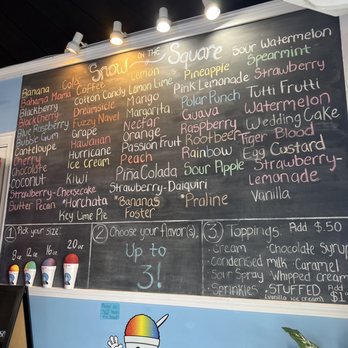 Snow on the Square
Banana
Bahama Mama
Blackberry
Black Cherry
Blue Raspberry
Bubble Gum
Cantaloupe
Cherry
Chocolate
Coconut
Strawberry-Cheesecake
Butter Pecan
Cola
Coffee
Cotton Candy
Dreamsicle
Fuzzy Navel
Grape
Hawaiian
Hurricane
Ice Cream
Kiwi
*Horchata
Key Lime Pie
Lemon
Lemon Lime
Mango
Margarita
Nectar
Orange
Passion Fruit
Peach
Piña Colada
Strawberry-Daiquiri
*Bananas
Foster
Pineapple
Pink Lemonade
Polar Punch
Guava
Raspberry
Rootbeer
Rainbow
Sour Apple
*Praline
Sour Watermelon
Spearmint
Strawberry
Tutti Frutti
Watermelon
Wedding Cake
Tiger Blood
Egg Custard
Strawberry-
Lemonade
Vanilla
1 Pick your size:
8 oz 12 oz 16 oz 20 oz
2 Choose your flavor(s).
Up to
3!
3 Toppings Add $.50
Cream
Condensed milk
Sour Spray
Sprinkles
Chocolate Syrup
Caramel
Whipped cream
STUFFED Add
(Vanilla ice cream)